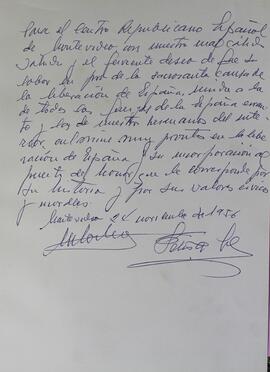 Para el Centro Republicano Español
de Montevideo, con nuestro más cálido
saludo y el ferviente deseo de que su
labor en pro de la sacrosanta causa de
la liberación de España, unida a la
de todos los de la España
y los de nuestros hermanos del inte-
rior, culmine muy pronto en la libe-
ración de España y su incorporación al
puesto de honor que le corresponde por
su historia y por sus valores cívicos
y morales.
Montevideo 24 noviembre de 1956